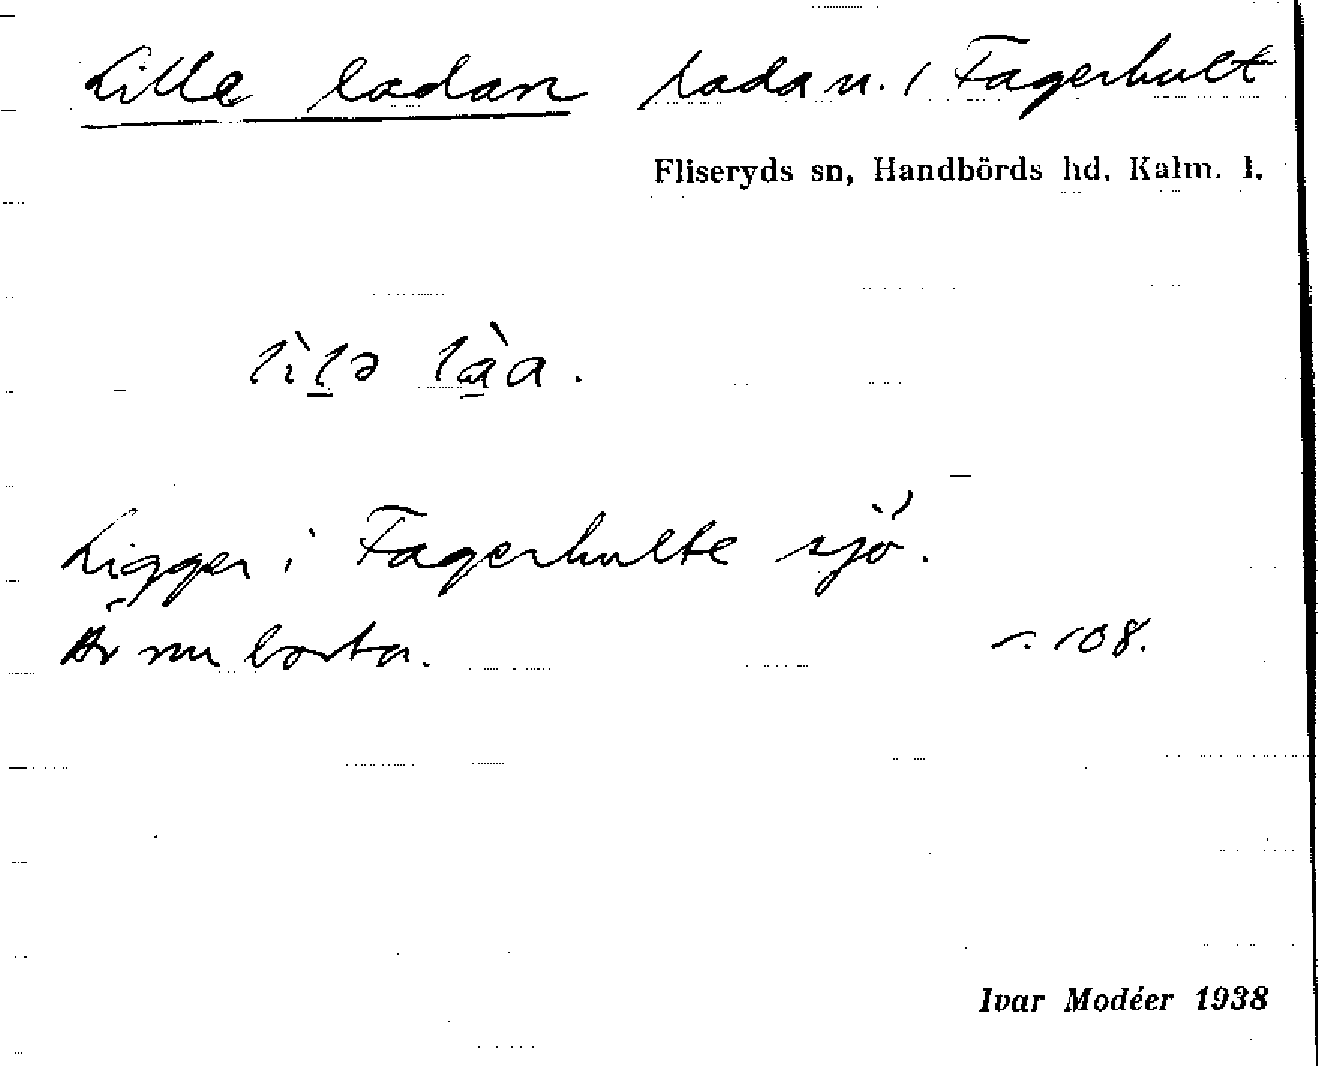 Lille ladan lada n. i Fagerhult
Fliseryds sn, Handbörds hd. Kalm. l.
lìlə làa.
Ligger i Fagerhulte sjö.
Är nu borta.
s. 108.
Ivar Modéer 1938